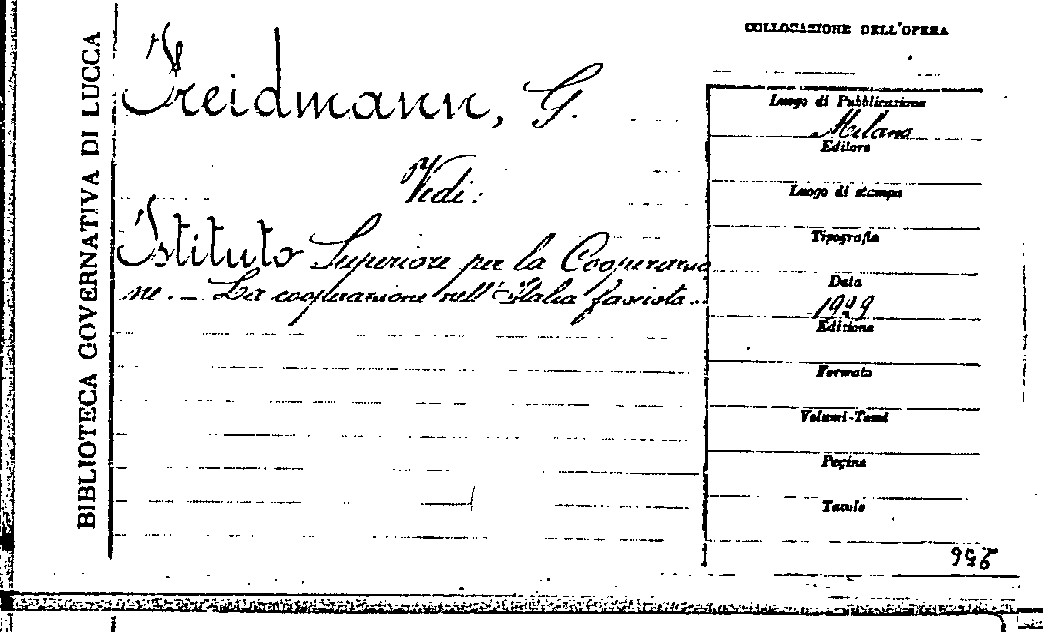 BIBLIOTECA GOVERNATIVA DI LUCCA
Freidmann, G.
Vedi:
Istituto Superiore per la Cooperazio
ne. – La cooperazione nell'Italia fascista.
COLLOCAZIONE DELL'OPERA
Luogo di Pubblicazione
Milano
Editore
Luogo di stampa
Tipografia
Data
1929
Edizione
Formato
Volumi-Tomi
Pagine
Tavole